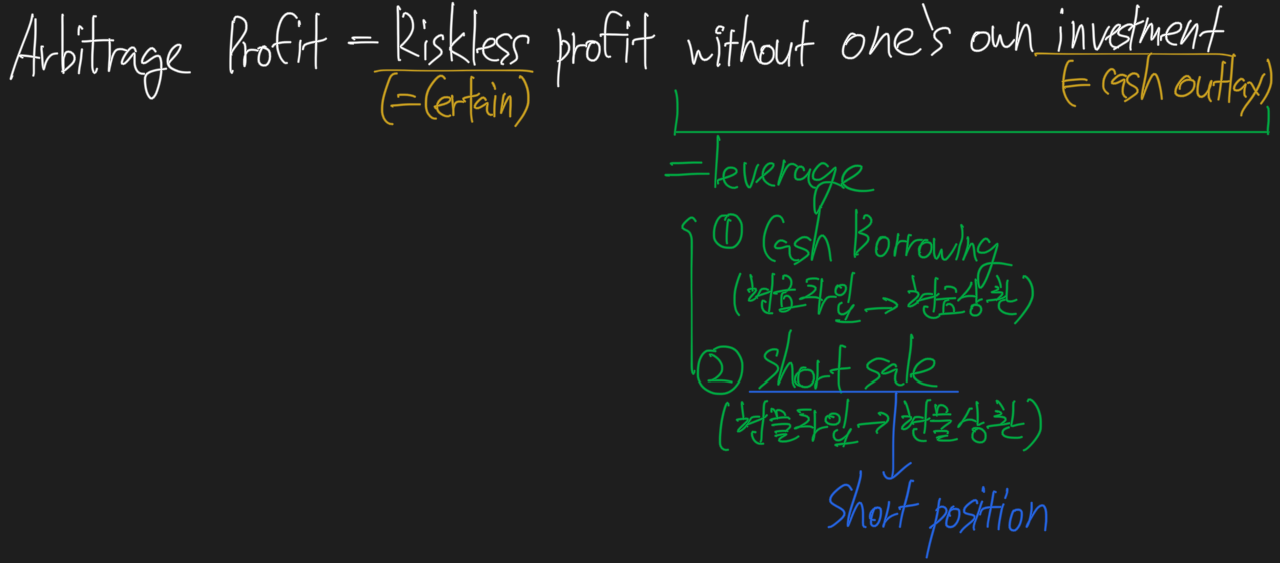 Arbitrage Profit = Riskless profit without one's own investment
(=Certain)
(= cash outlay)
=leverage
① Cash Borrowing
(현금차입 → 현금상환)
② Short sale
(현물차입 → 현물상환)
Short position